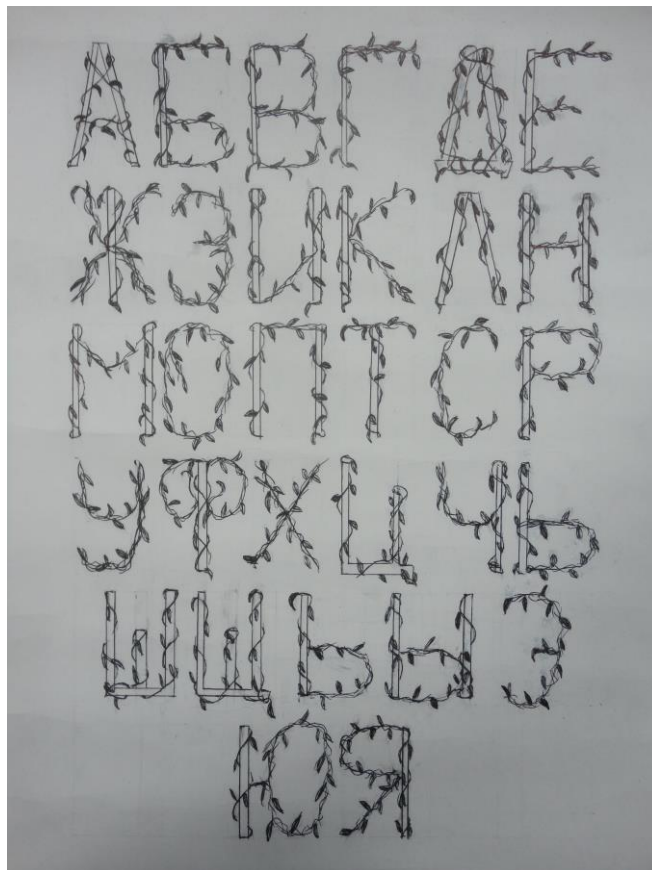 А Б В Г Д Е
Ж З И К Л Н
М О П Т С Р
У Ф Х Ц Ч Ь
Ш Щ Ь Ы Э
Ю Я